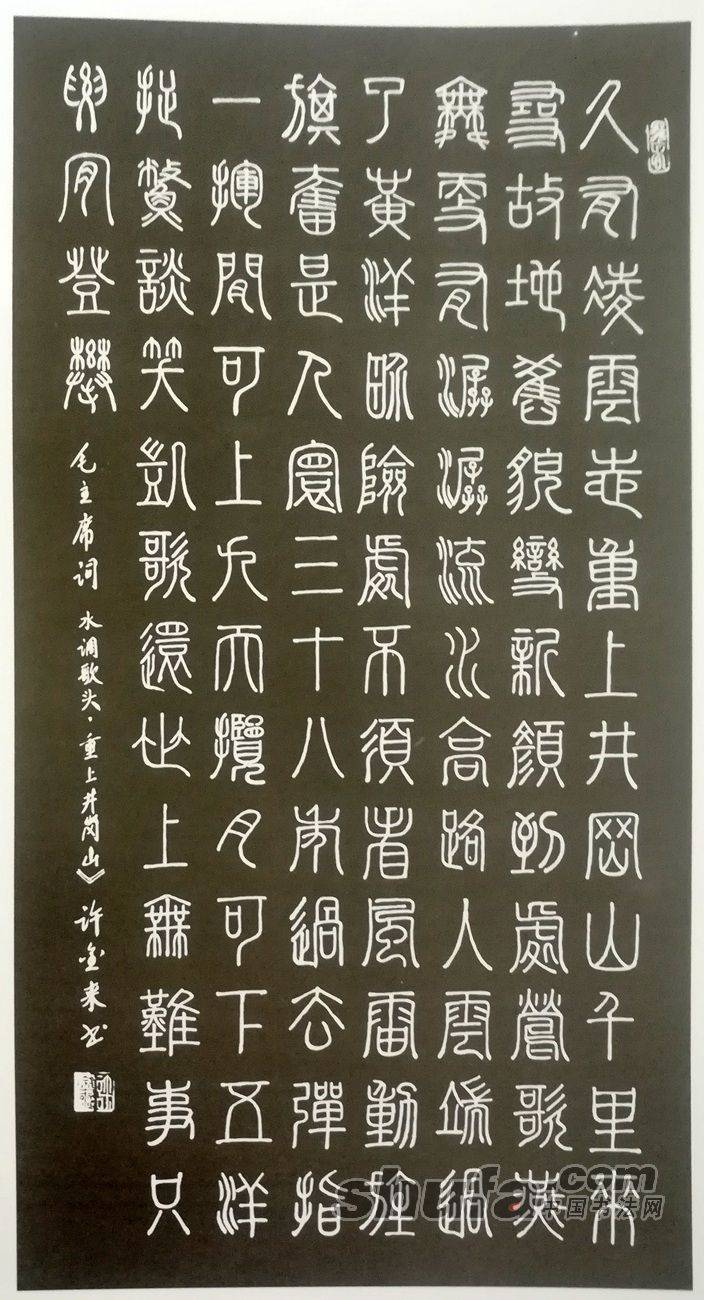 久有凌雲志重上井岡山千里來
尋故地舊貌變新顏到處鶯歌燕
舞更有潺潺流水高路入雲端過
了黃洋界險處不須看風雷動旌
旗奮是人寰三十八年過去彈指
一揮間可上九天攬月可下五洋
捉鱉談笑凱歌還世上無難事只
要肯登攀
毛主席词 水调歌头·重上井岗山》许金来书
shufa.com
中国书法网